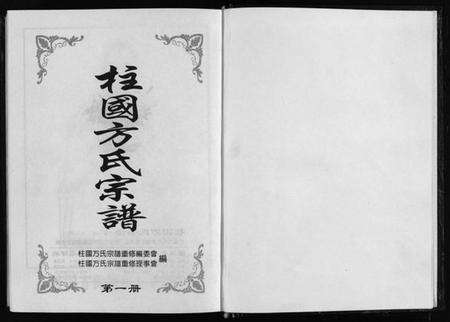 柱國方氏宗譜
柱國方氏宗譜重修編委會
柱國方氏宗譜重修理事會
編
第一册